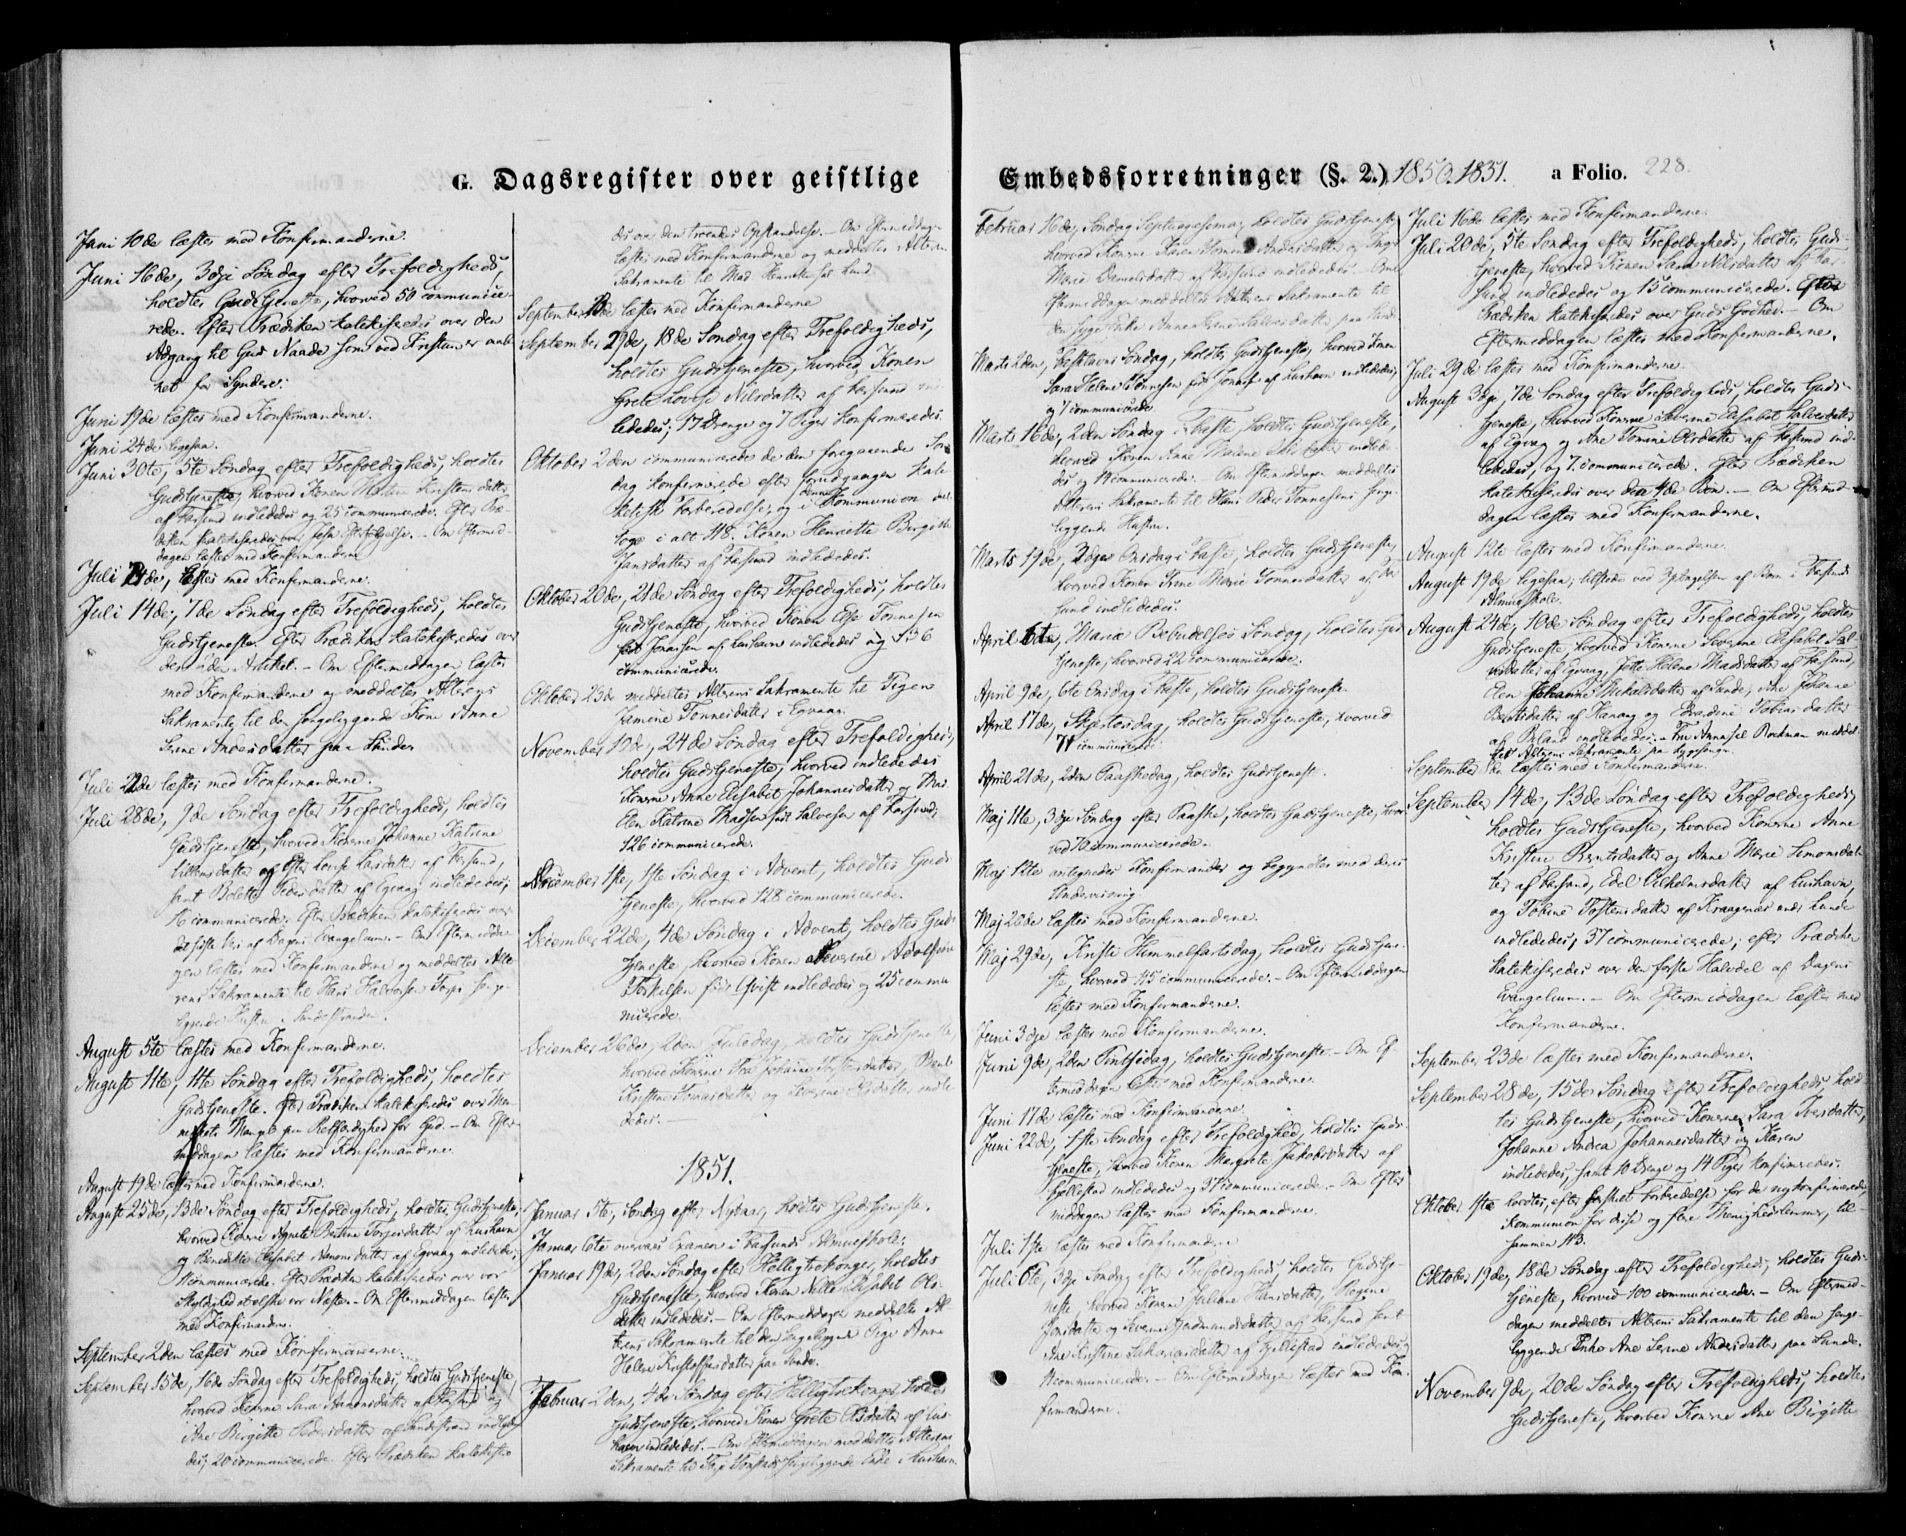 G. Dagsregister over geistlige
Juni 10de læstes med Konfirmanderne.
Juni 16de, 3die Søndag efter Trefoldigheds,
holdtes Gudstjeneste, hvorved 50 communice-
rede. Efter Prædiken katekiseredes over den
Adgang til Guds Naade som ved Kristum er aab-
net for Syndere.
Juni 19de læstes med Konfirmanderne.
Juni 24de
Juni 30te, 5te Søndag efter Trefoldigheds, holdtes
Gudstjeneste, hvorved Konen Kirstensdatter
af Farsund indlededes og 25 communicerede. Efter Præ-
diken katekiseredes over Jesu Efterfølgelse. - Om Eftermid-
dagen læstes med Konfirmanderne
Juli læstes med Konfirmanderne.
Juli 14de, 7de Søndag efter Trefoldigheds, holdtes
Gudstjeneste. Efter Prædiken katekiseredes over
den Artikel. - Om Eftermiddagen læstes
med Konfirmanderne og meddeltes Alterens
Sakramente til den sengeliggende Kone Anne
Serine Andersdatter paa Sunde.
Juli 22de læstes med Konfirmanderne.
Juli 28de, 9de Søndag efter Trefoldigheds, holdtes
Gudstjeneste, hvorved Konerne Johanne Katrine
og af Farsund,
samt Bolette Pedersdatter af Egvaag indlededes,
16 communicerede. Efter Prædiken katekiseredes over
det sidste Vers af Dagens Evangelium. - Om Eftermidda-
gen læstes med Konfirmanderne og meddeltes Alte-
rens Sakramente til Hans Halvorsen senge-
liggende Hustru
August 5te læstes med Konfirmanderne.
August 11te, 11te Søndag efter Trefoldigheds, holdtes
Gudstjeneste. Efter Prædiken katekiseredes over Men-
neskets Mangel paa Retfærdighed for Gud. - Om Efter-
middagen læstes med Konfirmanderne.
August 19de læstes med Konfirmanderne.
August 25de, 13de Søndag efter Trefoldigheds, holdtes Gudstjeneste,
hvorved Konerne Agnete Bertine Torjusdatter af Lushavn
og Benedikte Elisabet Amundsdatter af Egvaag indlededes,
communicerede. Efter Prædiken katekiseredes over vor
Skyldighed at elske vor Næste. - Om Eftermiddagen læstes
med Konfirmanderne.
September 2den læstes med Konfirmanderne.
September 15de, 16de Søndag efter Trefoldigheds, holdtes Gudstjeneste,
hvorved Konerne Sara Amundsdatter af Farsund og
Ane Birgitte Pedersdatter af indlede-
des, 20 communicerede. Efter Prædiken katekise-
des om den troendes Opstandelse. - Om Eftermiddagen
læstes med Konfirmanderne og meddeltes Alterens
Sakramente til
September læstes med Konfirmanderne
September 29de, 18de Søndag efter Trefoldigheds,
holdtes Gudstjeneste, hvorved Konen
Grete Lovise Nilsdatter af Farsund ind-
lededes; 17 Drenge og 7 Piger konfirmeredes.
Oktober 2den communicerede de den foregaaende Søn-
dag konfirmerede efter forudgangen kate-
ketisk Forberedelse, og i denne Kommunion del-
toge i alt 118. Konen Henriette Birgitte
Jansdatter af Farsund indlededes.
Oktober 20de, 21de Søndag efter Trefoldigheds, holdtes
Gudstjeneste, hvorved Konen Else Tonnesen
født Jonassen af Lushavn indlededes og 136
communicerede.
Oktober 23de meddeltes Alterens Sakramente til Pigen
Tonnesdatter i Egvaag.
November 10de, 24de Søndag efter Trefoldigheds,
holdtes Gudstjeneste, hvorved indlededes
Konerne Anne Elisabet Johannesdatter og
Elen Katrine Madsen født Salvesen af Farsund;
126 communicerede.
December 1ste, 1ste Søndag i Advent, holdtes Guds-
tjeneste, hvorved 128 communicerede.
December 22de, 4de Søndag i Advent, holdtes Guds-
tjeneste, hvorved Konen Severine Adolfine
Torkilsen født Qvist indlededes og 25 commu-
nicerede.
December 26de, 2den Juledag, holdtes Gudstjeneste
hvorved Konerne Johanne
Kirstine Tomasdatter og indle-
dedes.
1851.
Januar 5te, Søndag efter Nytaar, holdtes Gudstjeneste.
Januar overvar Examen i Farsunds Almueskole.
Januar 19de, 2den Søndag efter Helligtrekonger, holdtes
Gudstjeneste, hvorved Konen Nille Elisabet Ols-
datter indlededes. - Om Eftermiddagen meddeltes Al-
terens Sakramente til den sengeliggende Pige Anne
Helene Kristoffersdatter paa Sunde.
Februar 2den, 4de Søndag efter Helligtrekonger, holdtes
Gudstjeneste, hvorved Konen Grete Olsdatter af Lus-
havn indlededes. - Om Eftermiddagen meddeltes Alterens
Sakramente til sengeliggende Enke i Lushavn.
Embedsforretninger (§. 2.) 1850. 1851. a Folio. 228.
Februar 16de, Søndag Septuagesima, holdtes Gudstjeneste
hvorved Konerne Karen Tomine Andersdatter og Inger
Marie Danielsdatter af Farsund indlededes. - Om
Eftermiddagen meddeltes Alterens Sakramente til
den syge Enke Anne Serine Salvesdatter paa Sunde
Marts 2den, Fastelavns Søndag, holdtes Gudstjeneste, hvorved Konen
Sara Helene Tønnesen født Jonassen af Lushavn indlededes,
og 7 communicerede
Marts 16de, 2den Søndag i Faste, holdtes Gudstjeneste,
hvorved Konen Anne Malene indlede-
des og 14 communicerede. - Om Eftermiddagen meddeltes
Alterens Sakramente til Hans Peder Tønnessens senge-
liggende Hustru.
Marts 19de, Onsdag i Faste, holdtes Gudstjeneste,
hvorved Konen Trine Marie Tonnesdatter af Far-
sund indlededes.
April 6te, Mariæ Bebudelses Søndag, holdtes Guds-
tjeneste, hvorved 22 communicerede.
April 9de, 6te Onsdag i Faste, holdtes Gudstjeneste.
April 17de, Skjærtorsdag, holdtes Gudstjeneste, hvorved
71 communicerede.
April 21de, 2den Paaskedag, holdtes Gudstjeneste.
Maj 11te, 3die Søndag efter Paaske, holdtes Gudstjeneste, hvor-
ved 70 communicerede.
Maj 12te antegnedes Konfirmander og begyndtes med deres
Undervisning
Maj 20de læstes med Konfirmanderne.
Maj 29de, Kristi Himmelfartsdag, holdtes Gudstjene-
ste, hvorved 45 communicerede. - Om Eftermiddagen
læstes med Konfirmanderne.
Juni 3die læstes med Konfirmanderne.
Juni 9de, 2den Pintsedag, holdtes Gudstjeneste. - Om Ef-
termiddagen læstes med Konfirmanderne.
Juni 17de læstes med Konfirmanderne.
Juni 22de, 1ste Søndag efter Trefoldighed, holdtes Guds-
tjeneste, hvorved Konen Margrete Jakobsdatter af
Gjellestad indlededes og 37 communicerede. - Om Efter-
middagen læstes med Konfirmanderne.
Juli 1ste læstes med Konfirmanderne
Juli 6te, 3die Søndag efter Trefoldigheds, holdtes Gudstje-
neste, hvorved Konerne Juliane Hansdatter, Regine
Jonsdatter og Severine Gudmundsdatter af Farsund samt
Ane Kirstine Zakariasdatter af Gjellestad indlededes;
communicerede. - Om Eftermiddagen læstes med Kon-
firmanderne.
Juli 16de læstes med Konfirmanderne.
Juli 20de, 5te Søndag efter Trefoldigheds, holdtes Guds-
tjeneste, hvorved Konen Sara Nilsdatter af Far-
sund indlededes og 15 communicerede. Efter
Prædiken katekiseredes over Guds Godhed. - Om
Eftermiddagen læstes med Konfirmanderne.
Juli 29de læstes med Konfirmanderne.
August 3die, 7de Søndag efter Trefoldigheds, holdtes Guds-
tjeneste, hvorved Konerne Severine Elisabet Salvesdatter
af Egvaag og Ane Tomine Olsdatter af Farsund ind-
lededes, og 7 communicerede. Efter Prædiken
katekiseredes over den 4de Bøn. - Om Eftermid-
dagen læstes med Konfirmanderne.
August 12te læstes med Konfirmanderne
August 19de tilstede ved af Børn i Farsunds
Almueskole.
August 24de, 10de Søndag efter Trefoldigheds, holdtes
Gudstjeneste, hvorved Konerne Severine Elisabet Sal-
vesdatter af Egvaag, Jette Helene Madsdatter af Farsund,
Elen Johanne Mikalsdatter af Sunde, Ane Johanne
Berntsdatter af Hanang og Tobiasdatter
af indlededes. - Meddel-
tes Alterens Sakramente paa Sygesengen.
September læstes med Konfirmanderne.
September 14de, 13de Søndag efter Trefoldigheds,
holdtes Gudstjeneste, hvorved Konerne Anne
Kirstine Berntsdatter og Anne Marie Simonsdat-
ter af Farsund, Edel Vilhelmsdatter af Lushavn,
og Tobine Tostensdatter af Kraagenæs under Lunde
indlededes; 37 communicerede; efter Prædiken
katekiseredes over den første Halvdel af Dagens
Evangelium. - Om Eftermiddagen læstes med
Konfirmanderne.
September 23de læstes med Konfirmanderne.
September 28de, 15de Søndag efter Trefoldigheds, hold-
tes Gudstjeneste, hvorved Konerne Sara Iversdatter,
Johanne Andrea Johannesdatter og Karen
indlededes, samt 10 Drenge og 14 Piger konfirmeredes.
Oktober 1ste holdtes, efter Forberedelse for de nykonfirmerede,
Kommunion for disse og flere Menighedslemmer, til-
sammen 113.
Oktober 19de, 18de Søndag efter Trefoldigheds, holdtes Guds-
tjeneste, hvorved 100 communicerede. - Om Eftermid-
dagen meddeltes Alterens Sakramente til den senge-
liggende Enke Ane Serine Andersdatter paa Sunde.
November 9de, 20de Søndag efter Trefoldigheds, holdtes
Gudstjeneste, hvorved Konerne Ane Birgitte